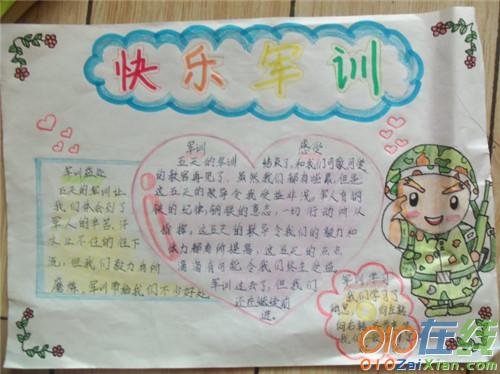 快乐军训
军训益处
五天的军训让
我们体会到了
军人的辛苦,汗
水止不住的往下
流,但我们毅力有所
磨练,军训带给我们不少好处
军训 感受
五天的军训 结束了,和我们可敬可爱
的教官再见了,虽然我们都有哑飙,但是
这五天的教导令我受益非浅,军人有钢
铁的纪律,钢铁的意志,一切行动听从
指挥,这五天的教导令我们的毅力和
体力都有所提高,这五天的点点
滴滴有可能令我们终生受益。
军训过去了,但我们
还在继续前
进。
军训学习
我们学习了
向左转
向右转
010在线
010ZaiXian.com